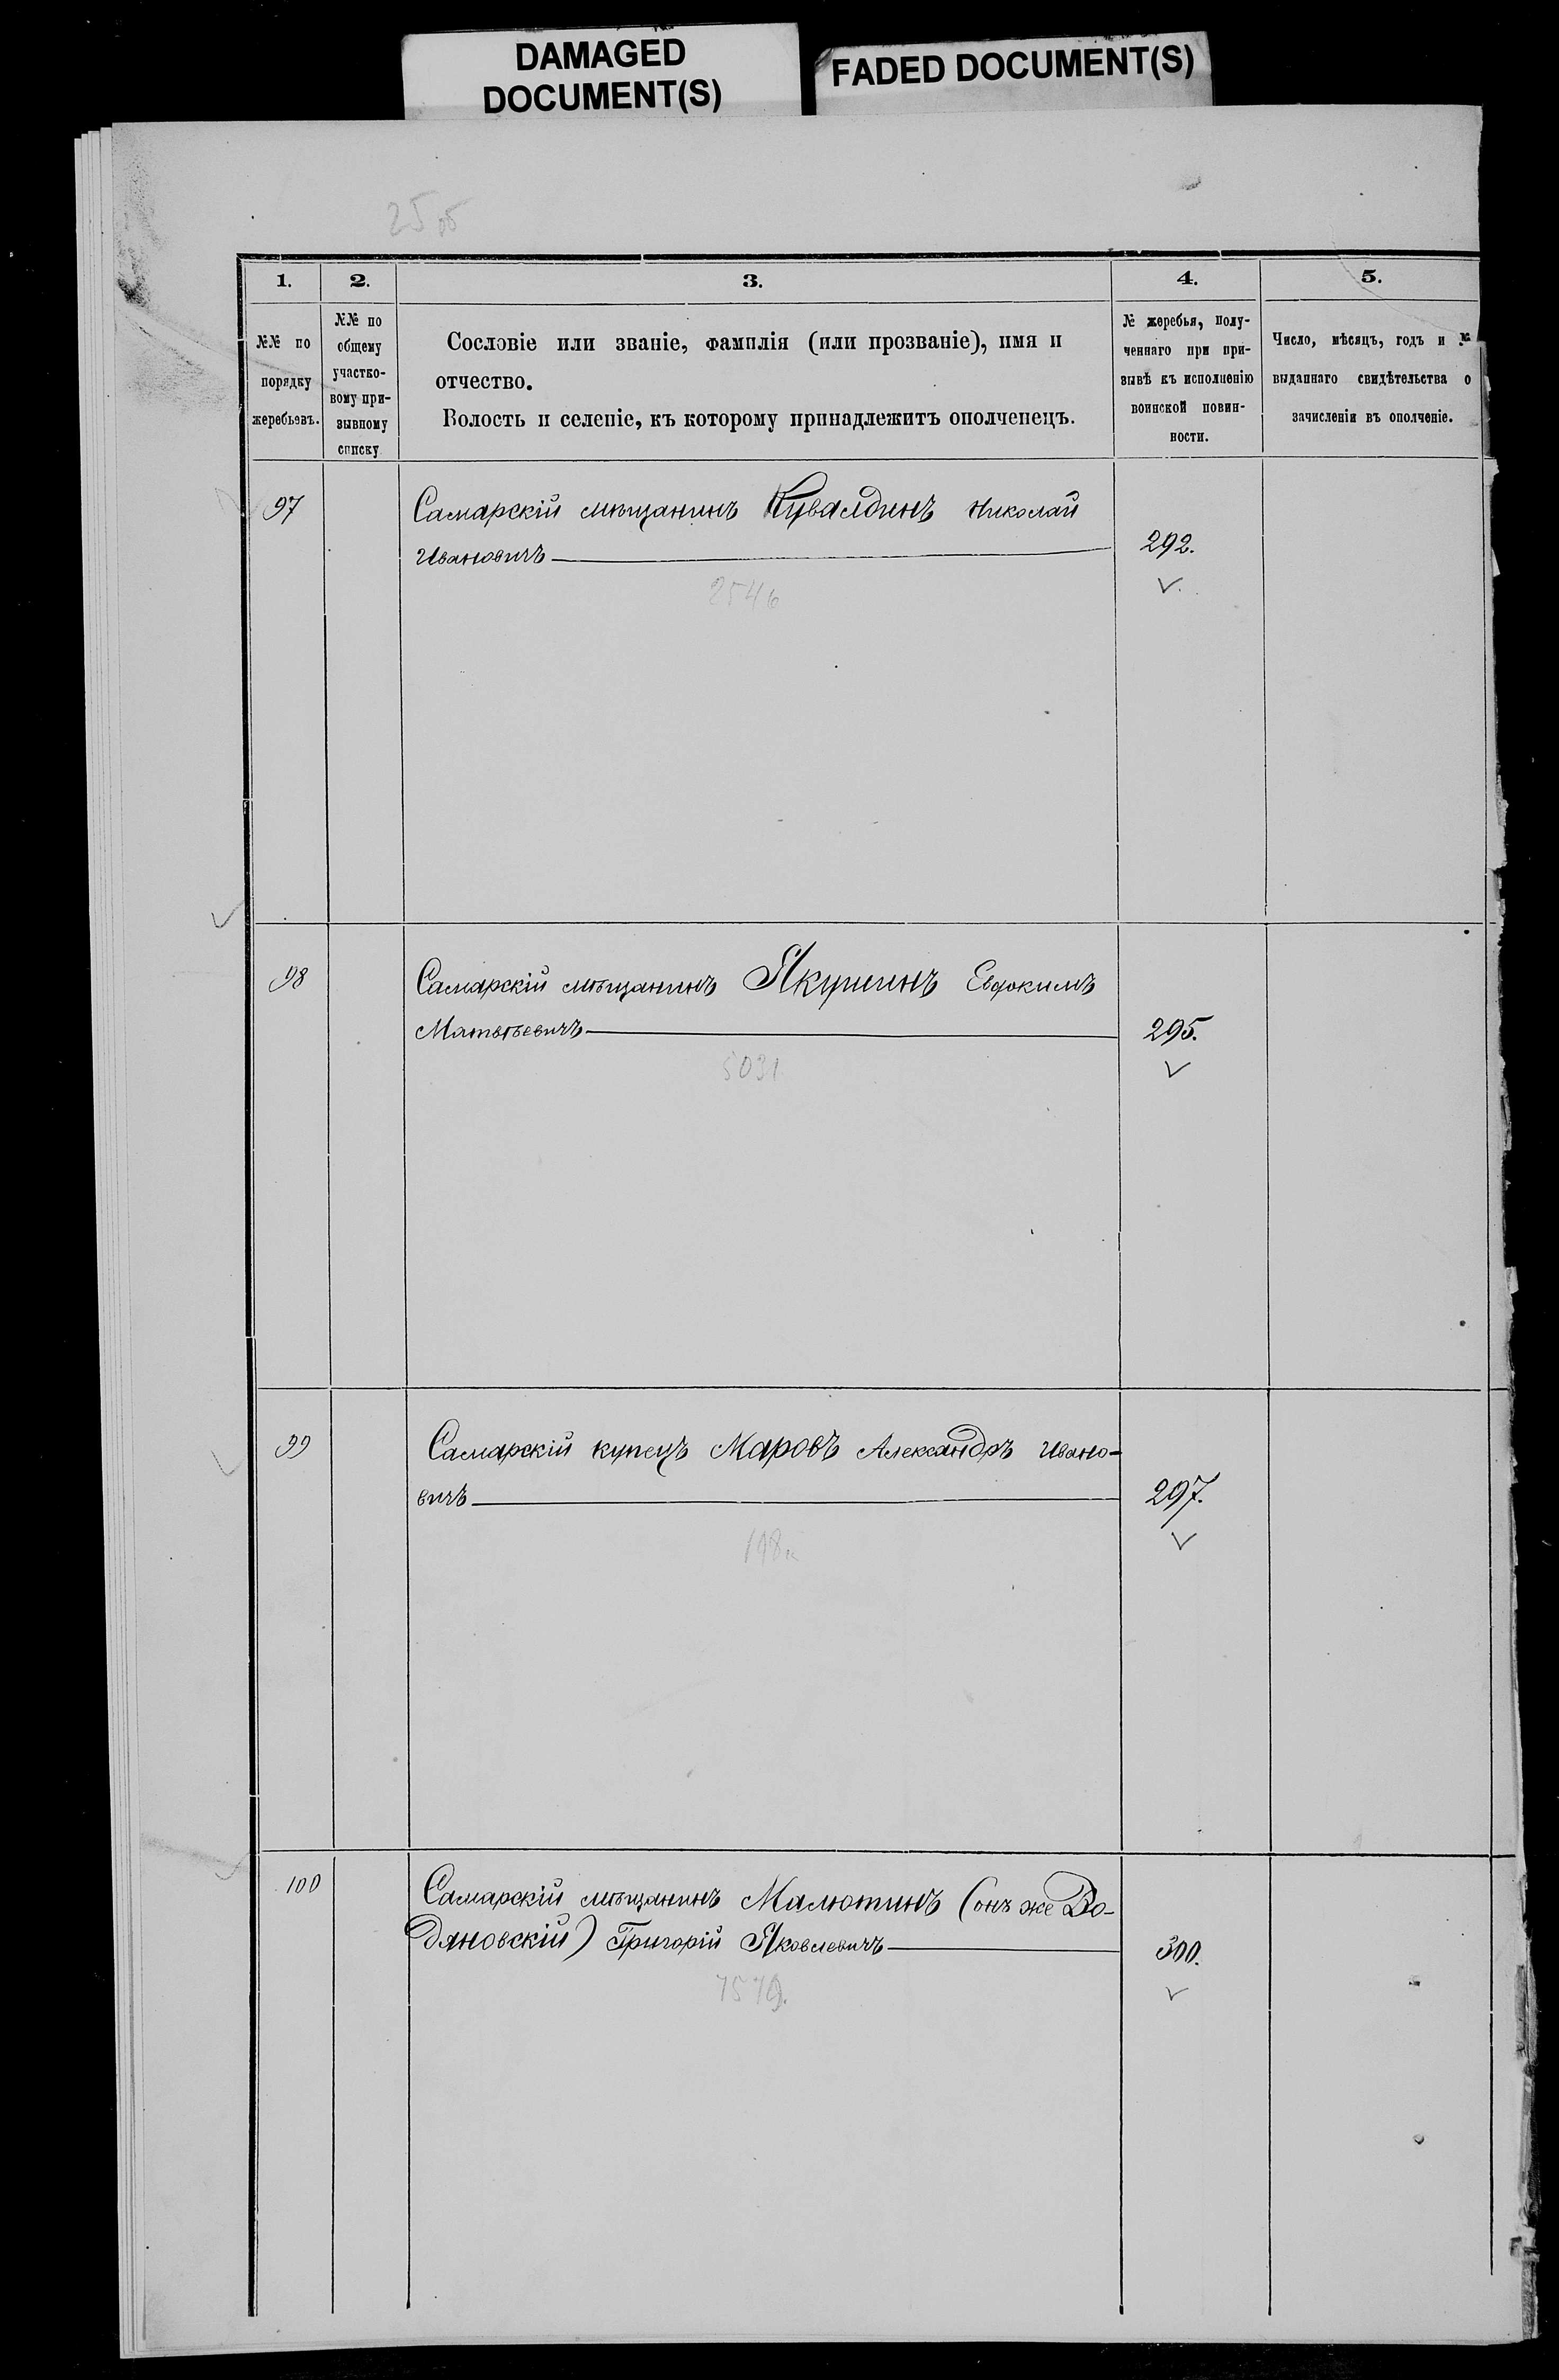 DAMAGED
DOCUMENT(S)
FADED DOCUMENT(S)
25об
1.
2.
3.
4.
5.
№№ по
порядку
жеребьевъ.
№№ по
общему
участко-
вому при-
зывному
списку
Сословіе или званіе, фамилія (или прозваніе), имя и
отчество.
Волость и селеніе, къ которому принадлежитъ ополченецъ.
№ жеребья, полу-
ченнаго при при-
зывѣ къ исполненію
воинской повин-
ности.
Число, мѣсяцъ, годъ и №
выданнаго свидѣтельства о
зачисленіи въ ополченіе.
97
Самарскій мѣщанинъ Кувалдинъ Николай
Ивановичъ
292.
254
98
Самарскій мѣщанинъ Якушинъ Евдокимъ
Матвѣевичъ
295.
5031
99
Самарскій купецъ Маровъ Александръ Ивано-
вичъ
297.
100
Самарскій мѣщанинъ Малютинъ (онъ же Во-
дяновскій) Григорій Яковлевичъ
300.
7579.